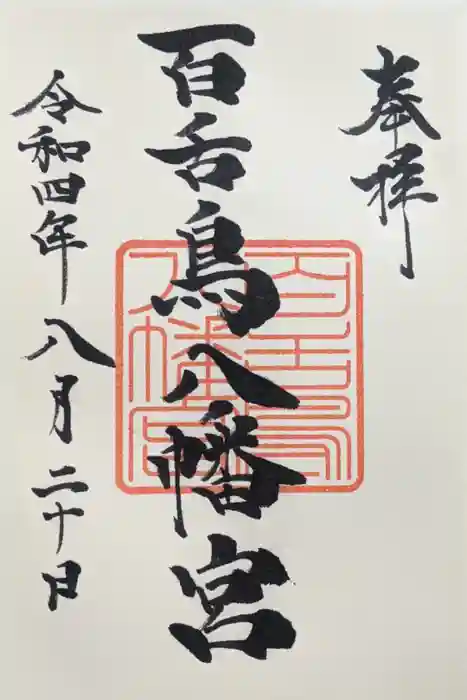 奉拝
百舌鳥八幡宮
百舌鳥
八幡宮
令和四年八月二十日